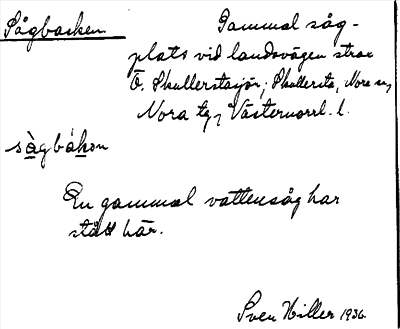 Sågbacken
Gammal såg-
plats vid landsvägen strax
Ö. Skullerstasjön, Skullersta, Nora sn,
Nora tg, Västernorrl. l.
sågbákan
En gammal vattensåg har
stått här.
Sven Hiller 1936.